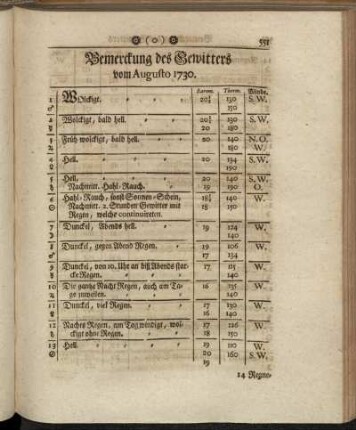 (o) 551
Bemerckung des Gewitters
vom Augusto 1730.
Barom. Therm. Winde.
1 Wolckigt. 20½ 130 S. W.
150
2 Wolckigt, bald hell. 20½ 130 S. W.
20 180
3 Früh wolckigt, bald hell. 20 140 N. O.
180 W.
4 Hell. 20 134 S. W.
190
5 Hell. 20 140 S. W.
Nachmitt. Hahl-Rauch. 19 190 O.
6 Hahl-Rauch, sonst Sonnen-Schein, 18½ 140 W.
Nachmitt. 2. Stunden Gewitter mit 18 150
Regen, welche continuireten.
7 Dunckel, Abends hell. 19 124 W.
140
8 Dunckel, gegen Abend Regen. 19 106 W.
17 134
9 Dunckel, von 10. Uhr an biß Abends star- 17 115 W.
cke Regen. 140
10 Die gantze Nacht Regen, auch am Ta- 16 125 W.
ge zuweilen. 140
11 Dunckel, viel Regen. 17 130 W.
16 140
12 Nachts Regen, am Tag windigt, wol- 17 126 W.
ckigt ohne Regen. 18 150
13 Hell. 19 110 W.
20 160 S. W.
19
14 Regne-